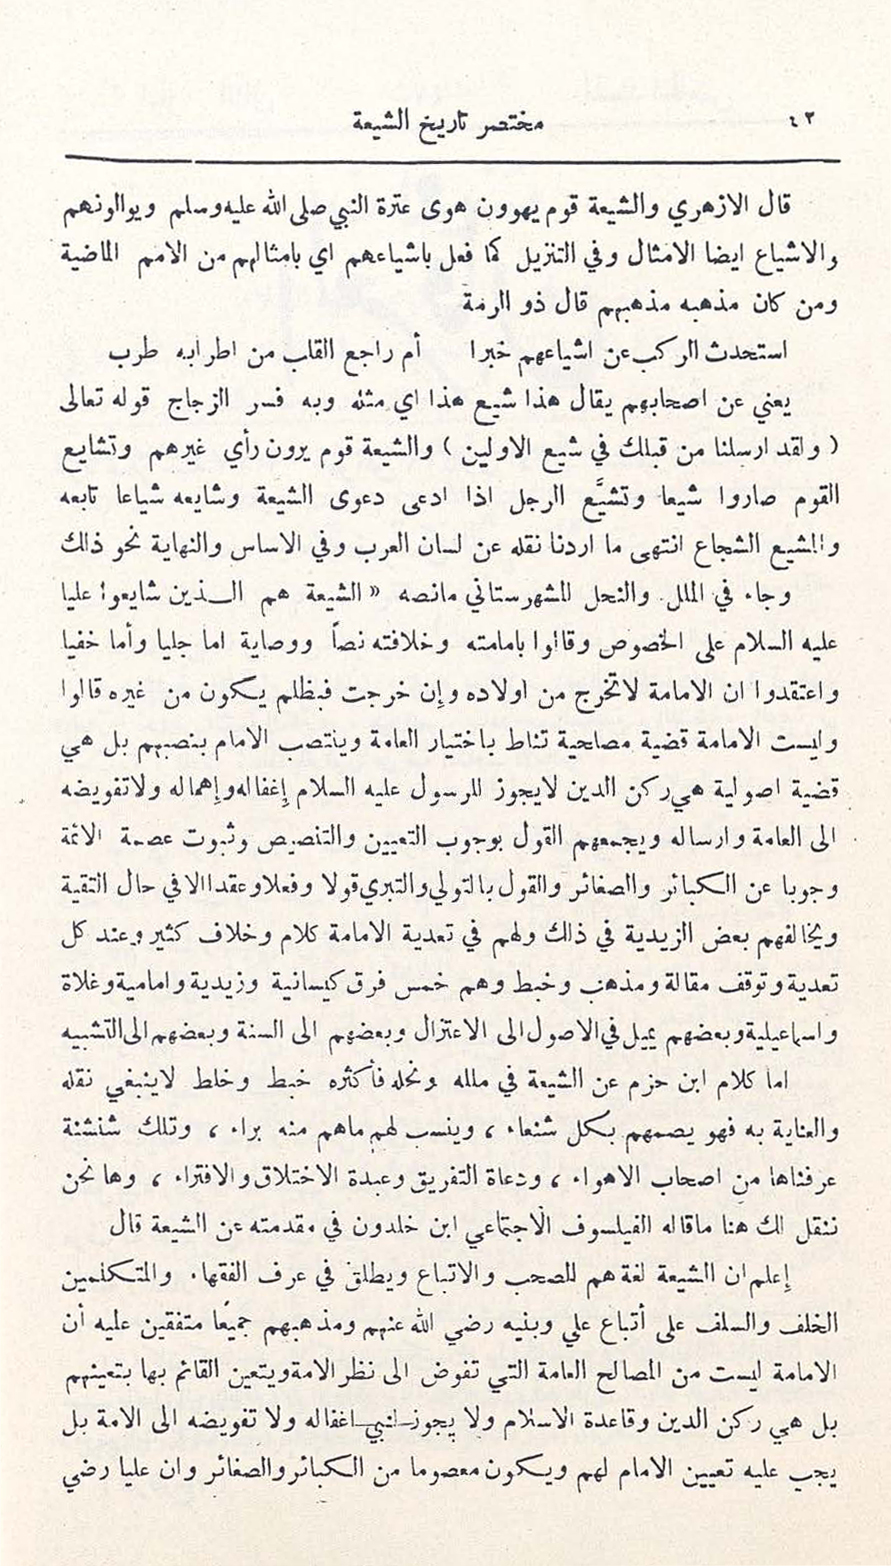 ٤٢ مختصر تاريخ الشيعة
قال الازهري والشيعة قوم يهوون هوى عترة النبي صلى الله عليه وسلم ويوالونهم
والاشياع ايضا الامثال وفي التنزيل كما فعل باشياعهم اي بامثالهم من الامم الماضية
ومن كان مذهبه مذهبهم قال ذو الرمة
استحدث الركب عن اشياعهم خبرا أم راجع القلب من اطرابه طرب
يعني عن اصحابهم يقال هذا شيع هذا اي مثله وبه فسر الزجاج قوله تعالى
( ولقد ارسلنا من قبلك في شيع الاولين ) والشيعة قوم يرون رأي غيرهم وتشايع
القوم صاروا شيعا وتشيَّع الرجل اذا ادعى دعوى الشيعة وشايعه شياعا تابعه
والمشيع الشجاع انتهى ما اردنا نقله عن لسان العرب وفي الاساس والنهاية نحو ذالك
وجاء في الملل والنحل للشهرستاني مانصه « الشيعة هم الـذين شايعوا عليا
عليه السلام على الخصوص وقالوا بامامته وخلافته نصاً ووصاية اما جليا وأما خفيا
واعتقدوا ان الامامة لاتخرج من اولاده وإن خرجت فبظلم يكون من غيره قالوا
وليست الامامة قضية مصلحية تناط باختيار العامة وينتصب الامام بنصبهم بل هي
قضية اصولية هي ركن الدين لايجوز للرسول عليه السلام إغفاله وإهماله ولا تفويضه
الى العامة وارساله ويجمعهم القول بوجوب التعيين والتنصيص وثبوت عصمة الائمة
وجوبا عن الكبائر والصغائر والقول بالتولي والتبري قولا وفعلا وعقدا الا في حال التقية
ويخالفهم بعض الزيدية في ذالك ولهم في تعدية الامامة كلام وخلاف كثير وعند كل
تعدية وتوقف مقالة ومذهب وخبط وهم خمس فرق كيسانية وزيدية وامامية وغلاة
واسماعيلية وبعضهم يميل في الاصول الى الاعتزال وبعضهم الى السنة وبعضهم الى التشبيه
اما كلام ابن حزم عن الشيعة في ملله ونحله فأكثره خبط وخلط لاينبغي نقله
والعناية به فهو يصمهم بكل شنعاء ، وينسب لهم ماهم منه براء ، وتلك شنشنة
عرفناها من اصحاب الاهواء ، ودعاة التفريق وعبدة الاختلاق والافتراء ، وها نحن
ننقل لك هنا ماقاله الفيلسوف الاجتماعي ابن خلدون في مقدمته عن الشيعة قال
إعلم ان الشيعة لغة هم للصحب والاتباع ويطلق في عرف الفقهاء والمتكلمين
الخلف والسلف على أتباع علي وبنيه رضي الله عنهم ومذهبهم جميعًا متفقين عليه أن
الامامة ليست من المصالح العامة التي تفوض الى نظر الامة ويتعين القائم بها بتعينهم
بل هي ركن الدين وقاعدة الاسلام ولا يجوز لنبي اغفاله ولا تفويضه الى الامة بل
يجب عليه تعيين الامام لهم ويكون معصوما من الكبائر والصغائر وان عليا رضي